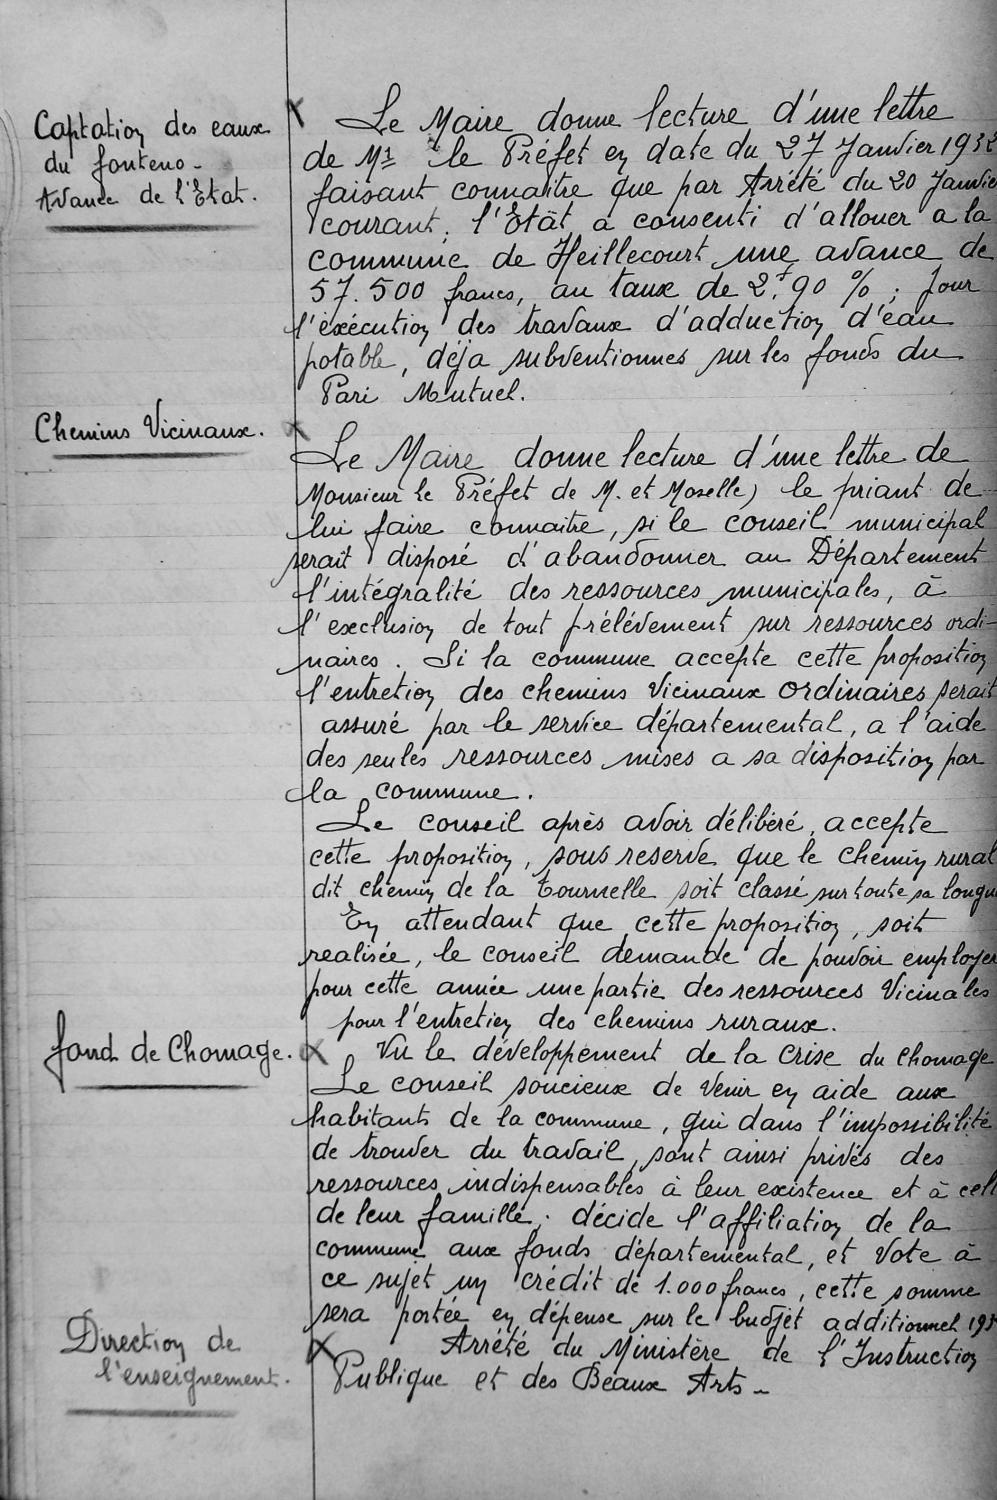 Captation des eaux
du fonteno -
Avance de l'Etat.
Le Maire donne lecture d'une lettre
de Mr le Préfet en date du 27 Janvier 1932
faisant connaitre que par Arrêté du 20 Janvie
courant, l'Etât a consenti d'allouer a la
commune de Heillecourt une avance de
57.500 francs, au taux de 2f,90 % ; pour
l'éxécution des travaux d'adduction d'eau
potable, déja subventionnes sur les fonds du
Pari Mutuel.
Chemins Vicinaux.
Le Maire donne lecture d'une lettre de
Monsieur le Préfet de M. et Moselle, le priant de
lui faire connaitre, si le conseil municipal
serait disposé d'abandonner au Département
l'intégralité des ressources municipales, à
l'exclusion de tout prélévement sur ressources ordi-
naires. Si la commune accepte cette proposition
l'entretien des chemins Vicinaux Ordinaires serait
assuré par le service départemental, a l'aide
des seules ressources mises a sa disposition par
la commune.
Le conseil après avoir délibéré, accepte
cette proposition, sous reserve que le chemin rural
dit chemin de la tournelle soit classé sur toute sa longu
En attendant que cette proposition, soit
realisée, le conseil demande de pouvoir employer
pour cette année une partie des ressources Vicinales
pour l'entretien des chemins ruraux.
fond de Chomage.
Vu le développement de la crise du chomage
Le conseil soucieux de venir en aide aux
habitants de la commune, qui dans l'impossibilité
de trouver du travail, sont ainsi privés des
ressources indispensables à leur existence et à cell
de leur famille, décide l'affiliation de la
commune aux fonds départemental, et Vote à
ce sujet un crédit de 1.000 francs, cette somme
sera portée en dépense sur le budjet additionnel 193
Direction de
l'enseignement.
Arrété du Ministère de l'Instruction
Publique et des Beaux Arts -